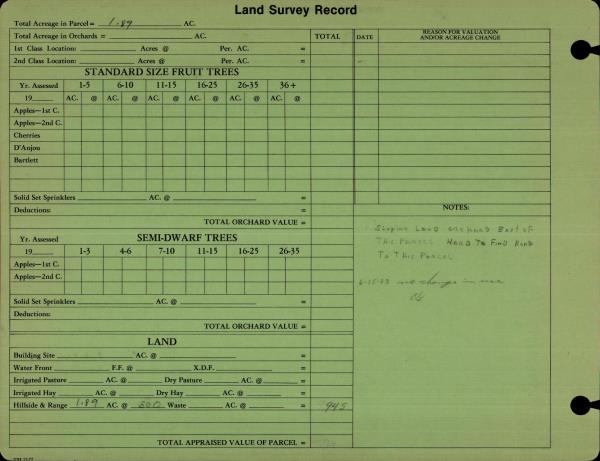 Land Survey Record
Total Acreage in Parcel = 1.89 AC.
Total Acreage in Orchards = AC. TOTAL DATE REASON FOR VALUATION AND/OR ACREAGE CHANGE
1st Class Location: Acres @ Per. AC. =
2nd Class Location: Acres @ Per. AC. =
STANDARD SIZE FRUIT TREES
Yr. Assessed 1-5 6-10 11-15 16-25 26-35 36+
19 AC. @ AC. @ AC. @ AC. @ AC. @ AC. @
Apples—1st C.
Apples—2nd C.
Cherries
D'Anjou
Bartlett
Solid Set Sprinklers AC. @ =
Deductions: =
TOTAL ORCHARD VALUE =
SEMI-DWARF TREES
Yr. Assessed
19 1-3 4-6 7-10 11-15 16-25 26-35
Apples—1st C.
Apples—2nd C.
Solid Set Sprinklers AC. @ =
Deductions:
TOTAL ORCHARD VALUE =
LAND
Building Site AC. @ =
Water Front F.F. @ X.D.F. =
Irrigated Pasture AC. @ Dry Pasture AC. @ =
Irrigated Hay AC. @ Dry Hay AC. @ =
Hillside & Range 1.89 AC. @ 500 Waste AC. @ = 945
TOTAL APPRAISED VALUE OF PARCEL =
NOTES:
Sloping Land orchard East of
This Parcel Hard To Find Road
To This Parcel
6-15-83 no change in use